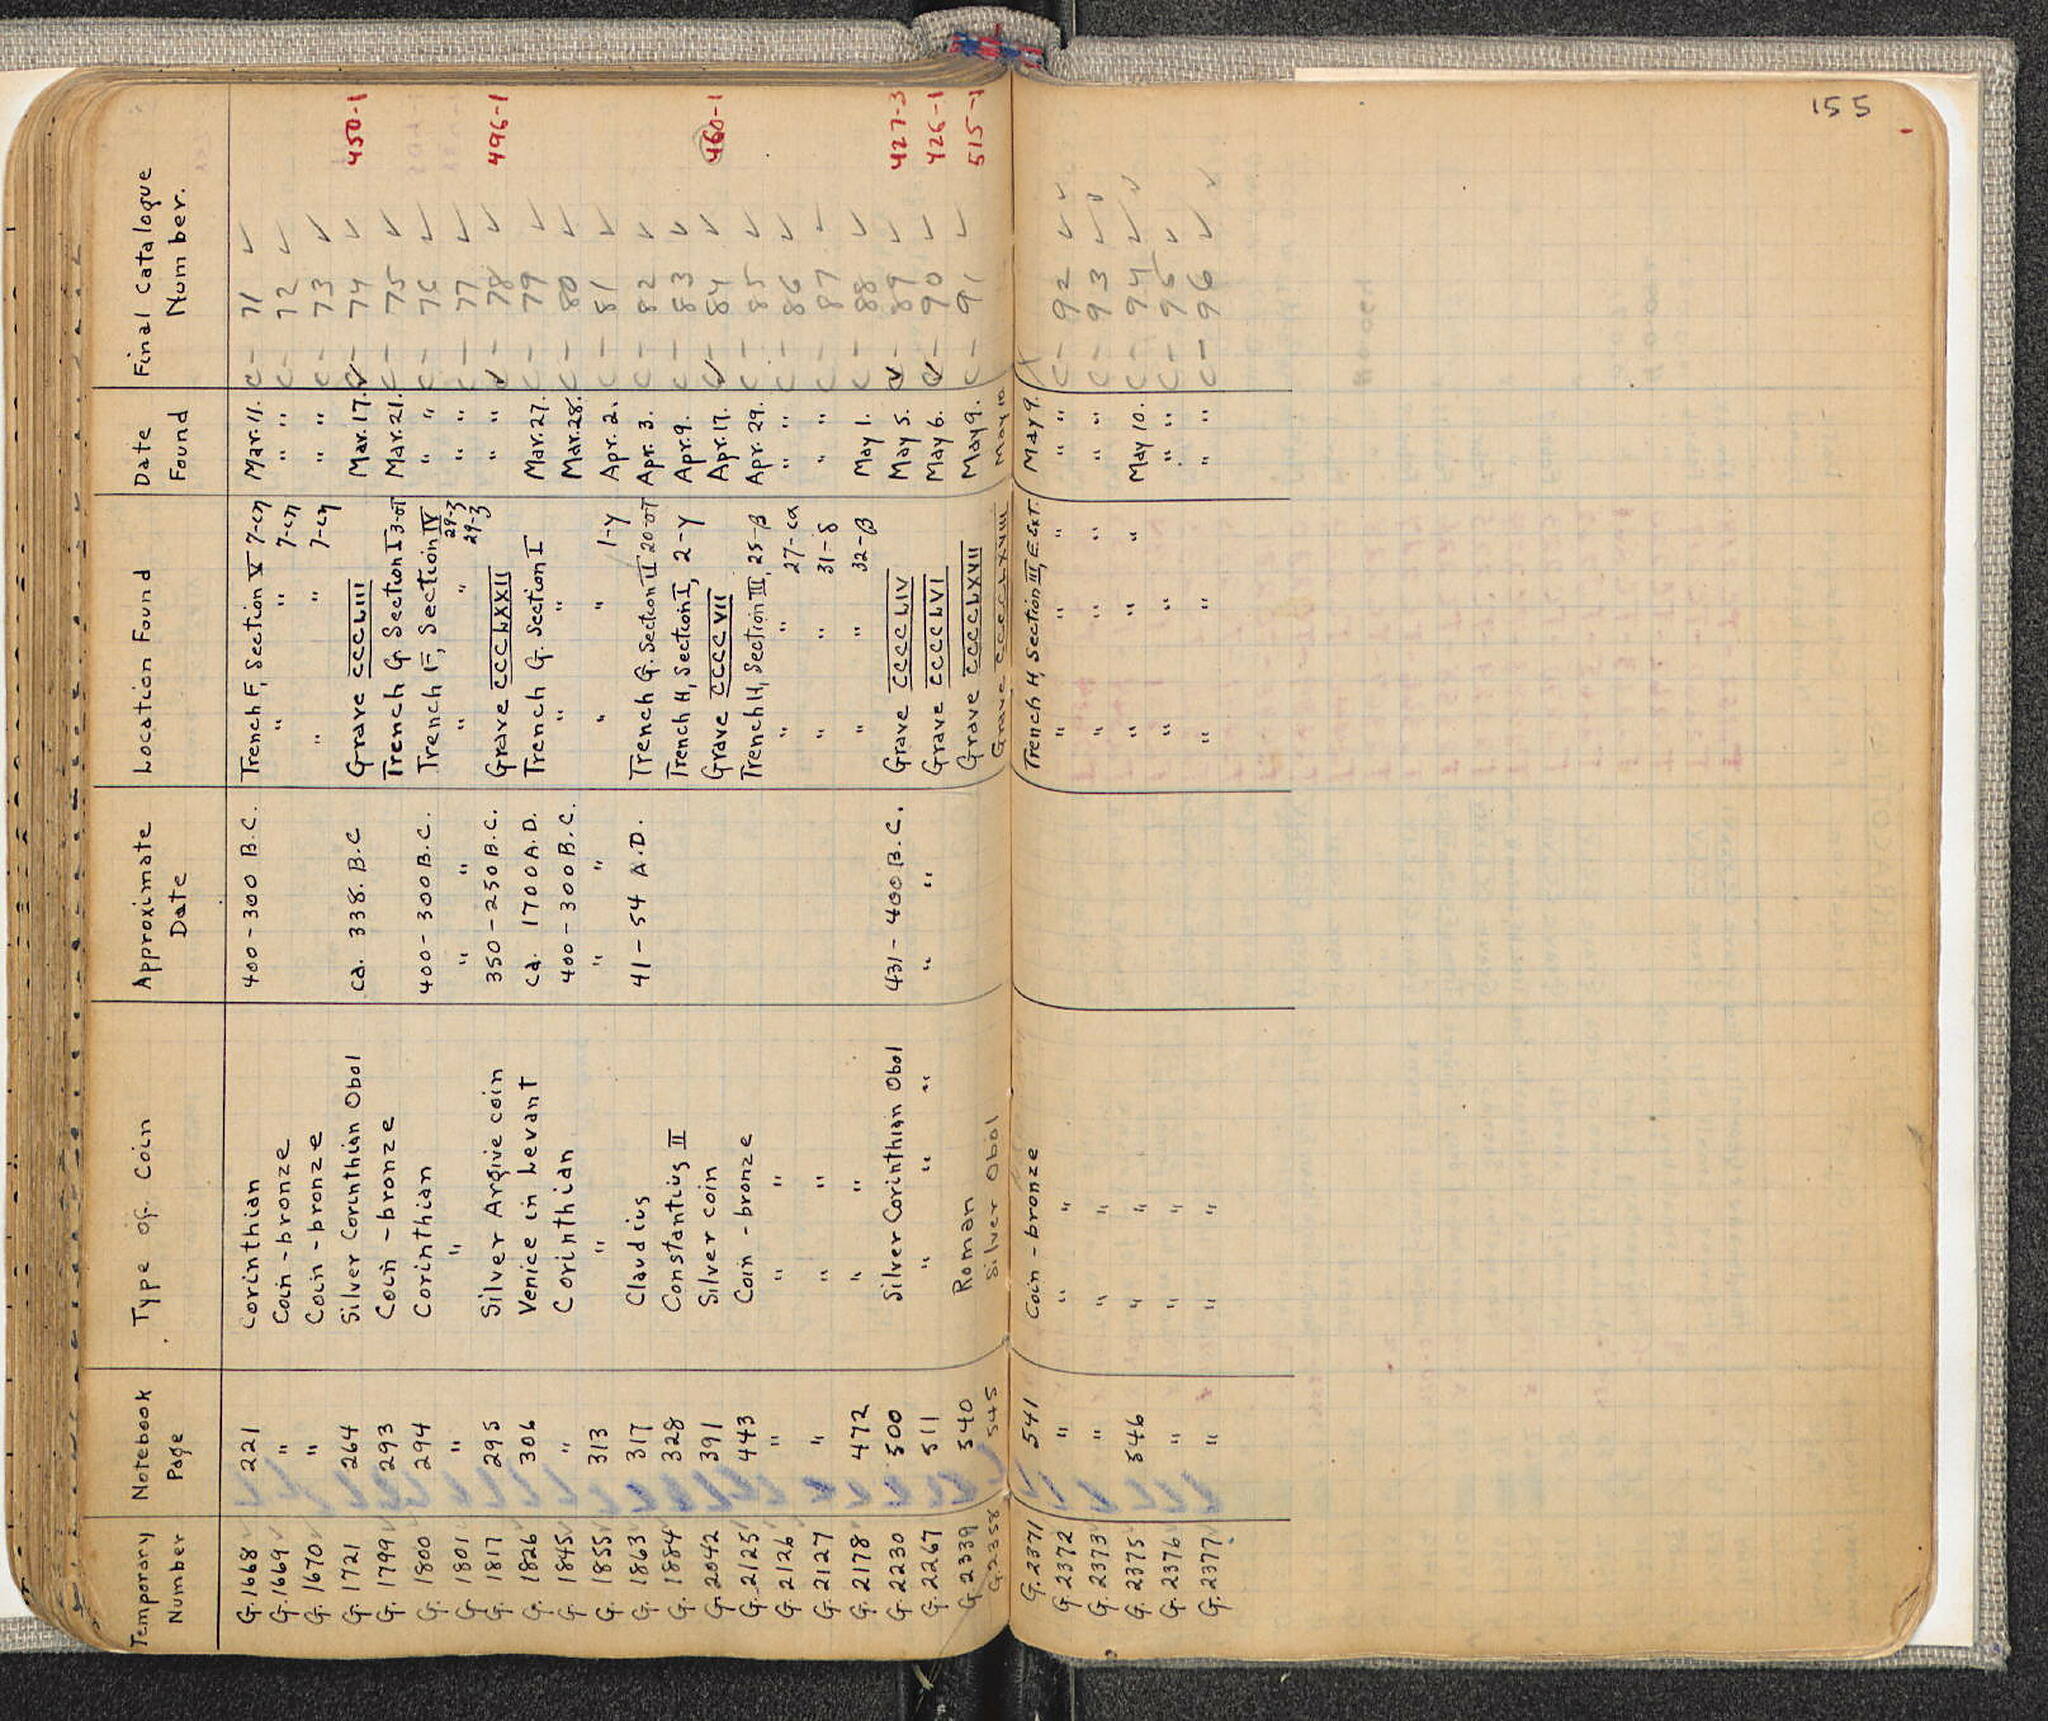 155
Temporary Number | Notebook Page | Type of Coin | Approximate Date | Location Found | Date Found | Final Catalogue Number.
G. 1668 | 221 | Corinthian | 400-300 B.C. | Trench F, Section V 7-en | Mar. 11. | C-71 ✓
G. 1669 | " | Coin-bronze | " 7-en | " " | C-72 ✓
G. 1670 | " | Coin-bronze | " " 7-en | " " | C-73 ✓
G. 1721 | 264 | Silver Corinthian Obol | ca. 338. B.C | Grave CCCLIII | Mar. 17. | C-74 ✓ 450-1
G. 1799 | 293 | Coin-bronze | Trench G. Section I 3-στ | Mar. 21. | C-75 ✓
G. 1800 | 294 | Corinthian | 400-300 B.C. | Trench F, Section IV 29-3 | " " | C-76 ✓
G. 1801 | " | " | " " | " " 29-3 | " " | C-77 ✓
G. 1817 | 295 | Silver Argive coin | 350-250 B.C. | Grave CCCLXXII | " " | C-78 ✓ 496-1
G. 1826 | 306 | Venice in Levant | ca. 1700 A.D. | Trench G. Section I | Mar. 27. | C-79 ✓
G. 1845 | " | Corinthian | 400-300 B.C. | " " | Mar. 28. | C-80 ✓
G. 1855 | 313 | " | " " | " " 1-γ | Apr. 2. | C-81 ✓
G. 1863 | 317 | Claudius | 41-54 A.D. | Trench G. Section II 20-στ | Apr. 3. | C-82 ✓
G. 1884 | 328 | Constantius II | Trench H, Section I, 2-γ | Apr. 9. | C-83 ✓
G. 2042 | 391 | Silver coin | Grave CCCCVII | Apr. 17. | C-84 ✓ 460-1
G. 2125 | 443 | Coin-bronze | Trench H, Section III, 25-β | Apr. 29. | C-85 ✓
G. 2126 | " | " " | " " 27-ca | " " | C-86 ✓
G. 2127 | " | " " | " " 31-δ | " " | C-87 ✓
G. 2178 | 472 | " " | " " 32-β | May 1. | C-88 ✓
G. 2230 | 500 | Silver Corinthian Obol | 431-400 B.C. | Grave CCCCLIV | May 5. | C-89 ✓ 427-3
G. 2267 | 511 | " " " | " " | Grave CCCCLVI | May 6. | C-90 ✓ 426-1
G. 2339 | 540 | Roman | Grave CCCCLXVII | May 9. | C-91 ✓ 515-1
G. 2358 | 545 | Silver Obol | Grave CCCCLXVIII | May 10
G. 2371 | 541 | Coin-bronze | Trench H, Section III, E. Ext. | May 9. | X
G. 2372 | " | " " | " " " | " " | C-92 ✓ ✓
G. 2373 | " | " " | " " " | " " | C-93 ✓ ✓
G. 2375 | 546 | " " | " " " | May 10. | C-94 ✓ ✓
G. 2376 | " | " " | " " | " " | C-95 ✓
G. 2377 | " | " " | " " | " " | C-96 ✓ ✓